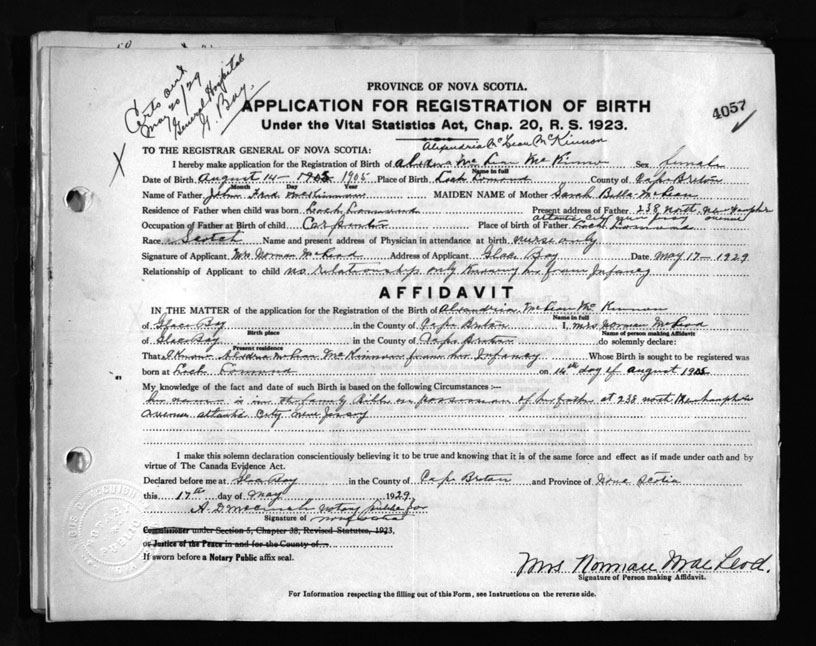 Certs and
May 20/29
General Hospital
G. Bay.
PROVINCE OF NOVA SCOTIA.
4057
APPLICATION FOR REGISTRATION OF BIRTH
Under the Vital Statistics Act, Chap. 20, R. S. 1923.
Alexandria McLean McKinnon
TO THE REGISTRAR GENERAL OF NOVA SCOTIA:
I hereby make application for the Registration of Birth of McLean McKinnon Sex female
Name in full
Date of Birth August 14 - 1905 1905 Place of Birth Loch Lomond County of Cape Breton
Month Day Year
Name of Father John Fred McKinnon MAIDEN NAME of Mother Sarah Bella McLean
Residence of Father when child was born Loch Lomond Present address of Father 238 North New Hampshire
Atlantic City New Jersey avenue
Occupation of Father at Birth of Child Carpenter Place of birth of Father Loch Lomond
Race Scotch Name and present address of Physician in attendance at birth nurse only
Signature of Applicant Mrs Norman McLeod Address of Applicant Glace Bay Date May 17 - 1929
Relationship of Applicant to child no relationship only knowing her from Infancy
AFFIDAVIT
IN THE MATTER of the application for the Registration of the Birth of Alexandria McLean McKinnon
Name in full
of Glace Bay in the County of Cape Breton I, Mrs Norman McLeod
Birth place Name of person making Affidavit
of Glace Bay in the County of Cape Breton do solemnly declare:
Present residence
That I Know McLean McKinnon from her Infancy Whose Birth is sought to be registered was
born at Loch Lomond on 14th day of August 1905
My knowledge of the fact and date of such Birth is based on the following Circumstances :—
her name is in the family Bible in possession of her father at 238 north New hampshire
avenue atlantic City New Jersey
I make this solemn declaration conscientiously believing it to be true and knowing that it is of the same force and effect as if made under oath and by
virtue of The Canada Evidence Act.
Declared before me at Glace Bay in the County of Cape Breton and Province of Nova Scotia
this 17th day of May 1929
A D notary public for
Signature of nova scotia
Commissioner under Section 5, Chapter 38, Revised Statutes, 1923,
or Justice of the Peace in and for the County of
If sworn before a Notary Public affix seal.
Mrs Norman MacLeod.
Signature of Person making Affidavit.
For Information respecting the filling out of this Form, see Instructions on the reverse side.